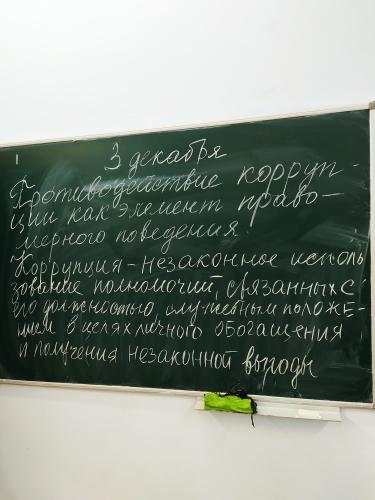 3 декабря
Противодействие корруп-
ции как элемент право-
мерного поведения.
Коррупция - незаконное исполь
зование полномочий, связанных с
его должностью, служебным положе-
нием в целях личного обогащения
и получения незаконной выгоды